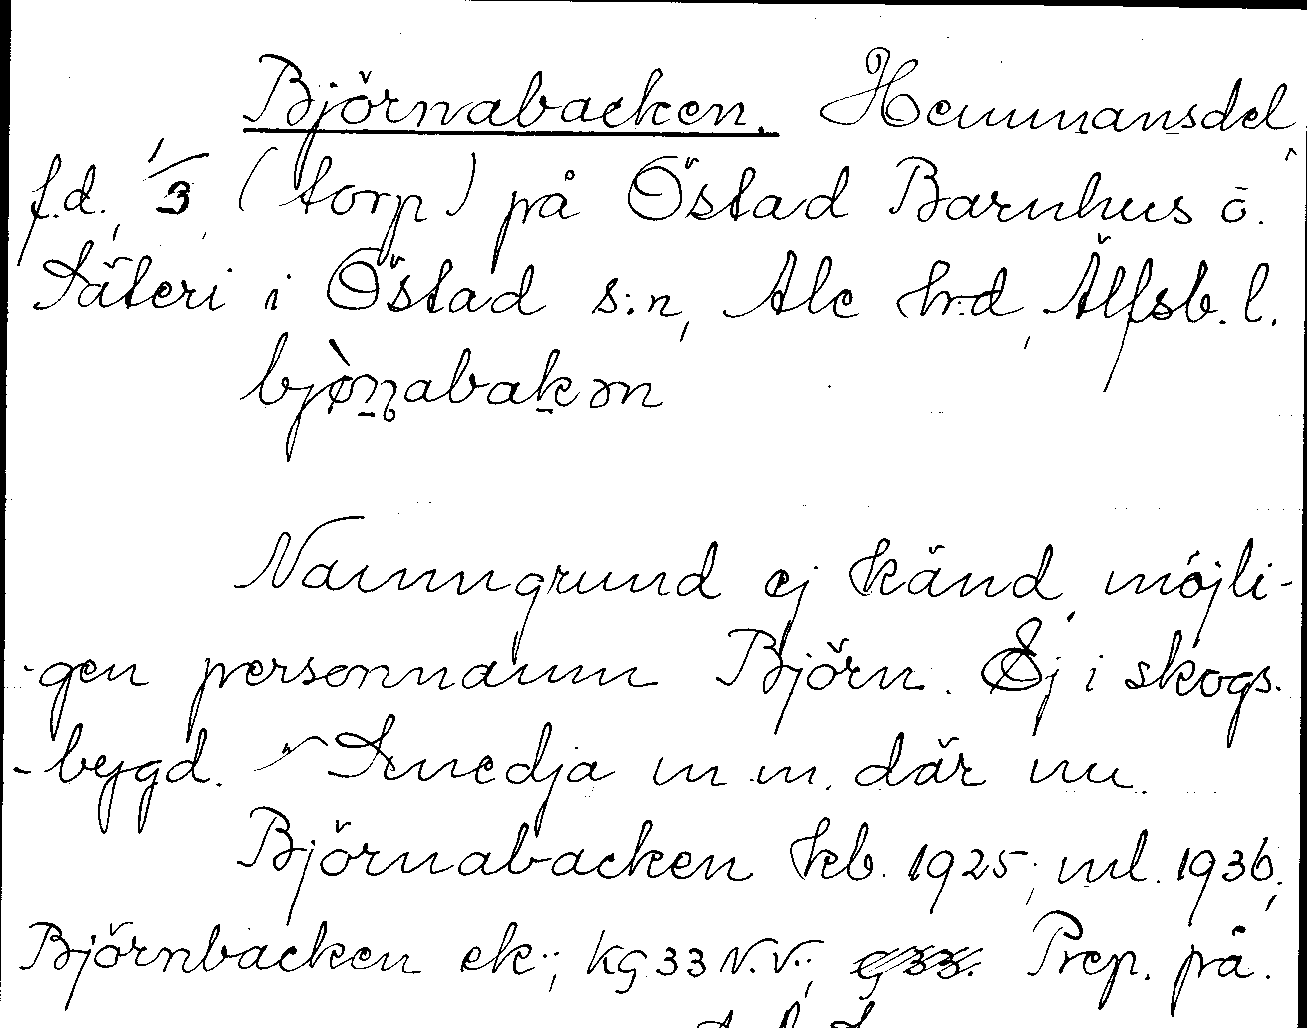 Björnabacken. Hemmansdel,
f.d. 1/3 (torp) på Östad Barnhus o.
Säteri i Östad s:n, Ale hrd, Älfsb. l.
bjò̤n̥abakən
Namngrund ej känd, möjli-
-gen personnamn Björn. Ej i skogs-
-bygd. Smedja m.m. där nu.
Björnabacken kb. 1925; ml. 1936;
Björnbacken ek.; kg 33 N.V.; Prep. på.